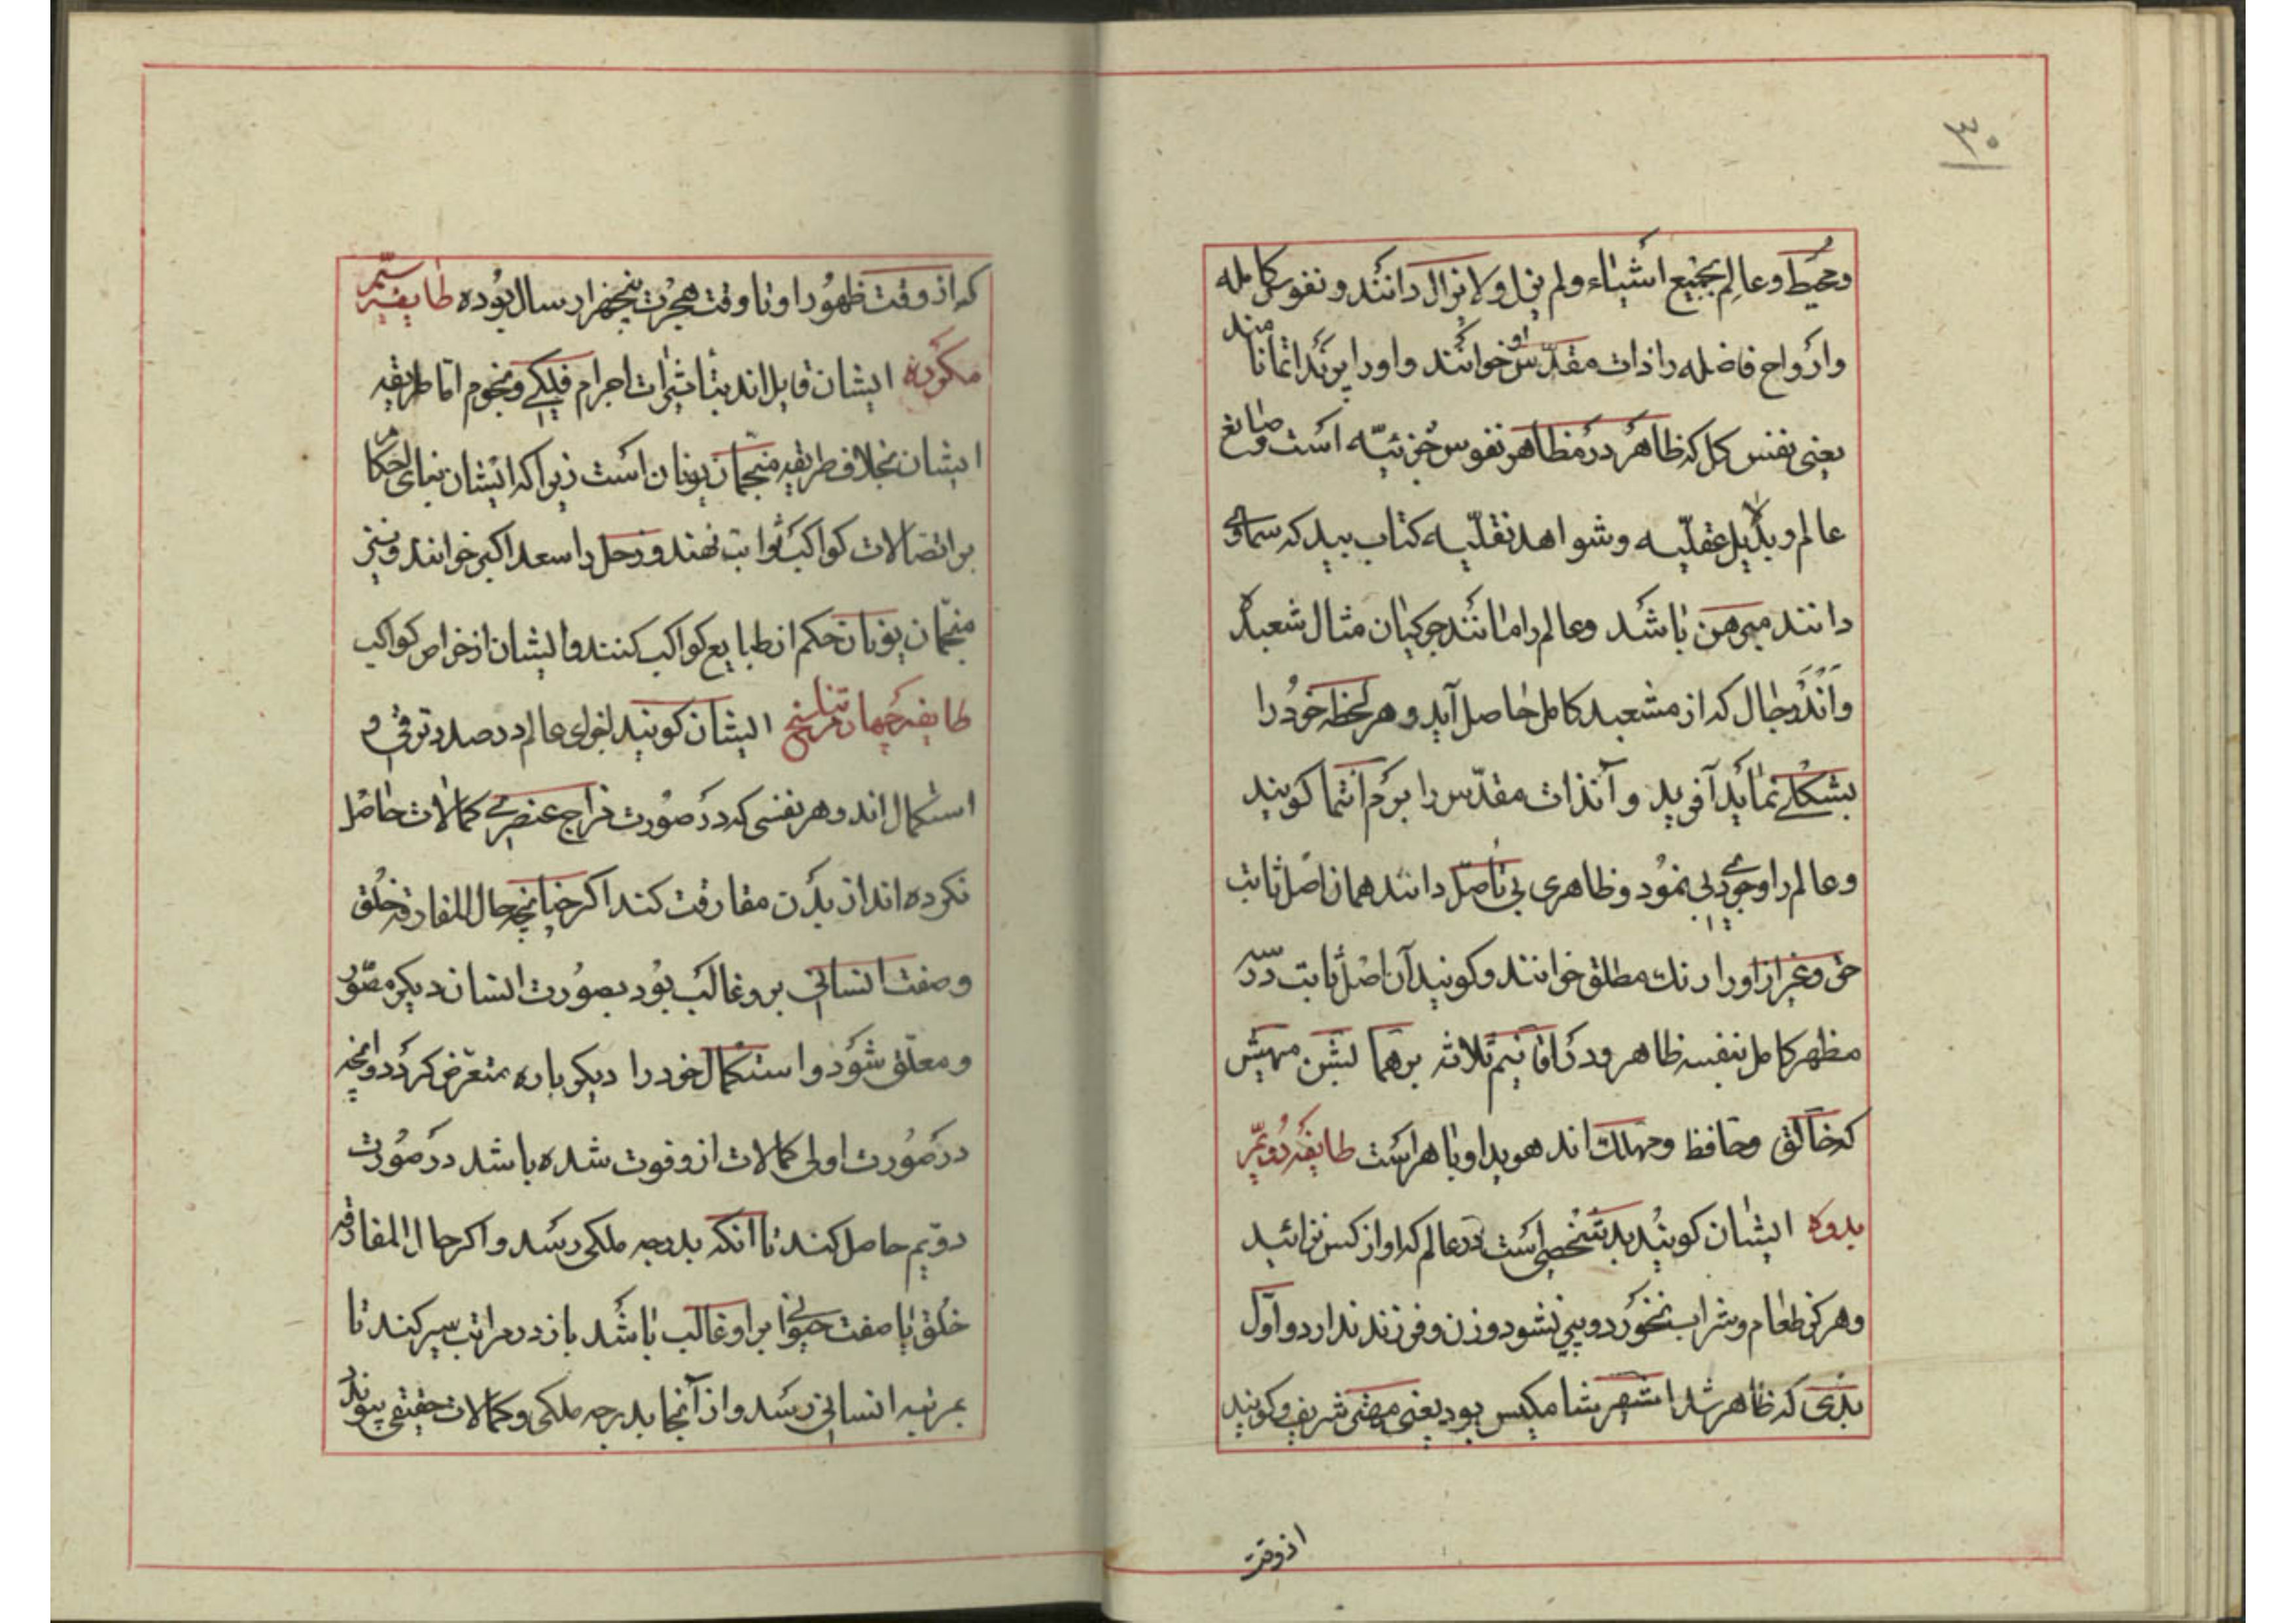 ۳۰
و محیط و عالم بجمیع اشیاء و لم یزل و لا یزال دانند و نفوس کامله
و ارواح فاضله را ذات مقدّس او خوانند و او را پرند اتما نامند
یعنی نفس کل که ظاهر در مظاهر نفوس جزئیّه است و صانع
عالم و بدلایل عقلیّه و شواهد نقلیّه کتاب بید که سماوی
دانند مبرهن باشد و عالم را مانند جوکیان مثال شعبده
و اندر جال که از مشعبد کامل حاصل آید و هر لحظه خود را
بشکلی نماید آفرید و آنذات مقدّس را برم اتما کویند
و عالم را وجودی بی نمود و ظاهری بی تاصّل دانند همان اصل ثابت
حق و غیر از او را رنک مطلق خوانند و کویند آن اصل ثابت در سه
مظهر کامل بنفسه ظاهر و در اقانیم ثلاثه برهما بشن مهیش
که خالق و حافظ و مهلک اند هویدا و باهر است طایفه دویّم
بدوه ایشان کویند بد شخصی است در عالم که او از کس نزائید
و هرکز طعام و شراب نخورد و پیر نشود و زن و فرزند ندارد و اول
بدی که ظاهر شد اسمش شامکیس بود یعنی مهتر شریف و کویند
از وقت
که از وقت ظهور او تا وقت هجرت پنجهزار سال بوده طایفه سیّم
مکوره ایشان قایل اند بتاثیرات اجرام فلکی و نجوم اما طریقه
ایشان بخلاف طریقه منجّمان یونان است زیرا که ایشان بنای احکام
بر اتصالات کواکب ثوابت نهند و زحل را سعد اکبر خوانند و نیز
منجّمان یونان حکم از طبایع کواکب کنند و ایشان از خواص کواکب
طایفه چهارم تناسخی ایشان کویند اجزای عالم در صدد ترقی و
استکمال اند و هر نفسی که در صورت مزاج عنصری کمالات حاصل
نکرده اند از بدن مفارقت کند اکر چنانچه حال المفارقه خلق
و صفت انسانی برو غالب بود بصورت انسان دیکر مصوّر
و معلّق شود و استکمال خود را دیکر باره متعرّض کردد و آنچه
در صورت اولی کمالات از و فوت شده باشد در صورت
دویّم حاصل کند تا آنکه بدرجه ملکی رسد و اکر حال المفارقه
خلق یا صفت حیوانی بر او غالب باشد باز در مراتب سیر کند تا
بمرتبه انسانی رسد و از آنجا بدرجه ملکی و کمالات حقیقی پیوندد